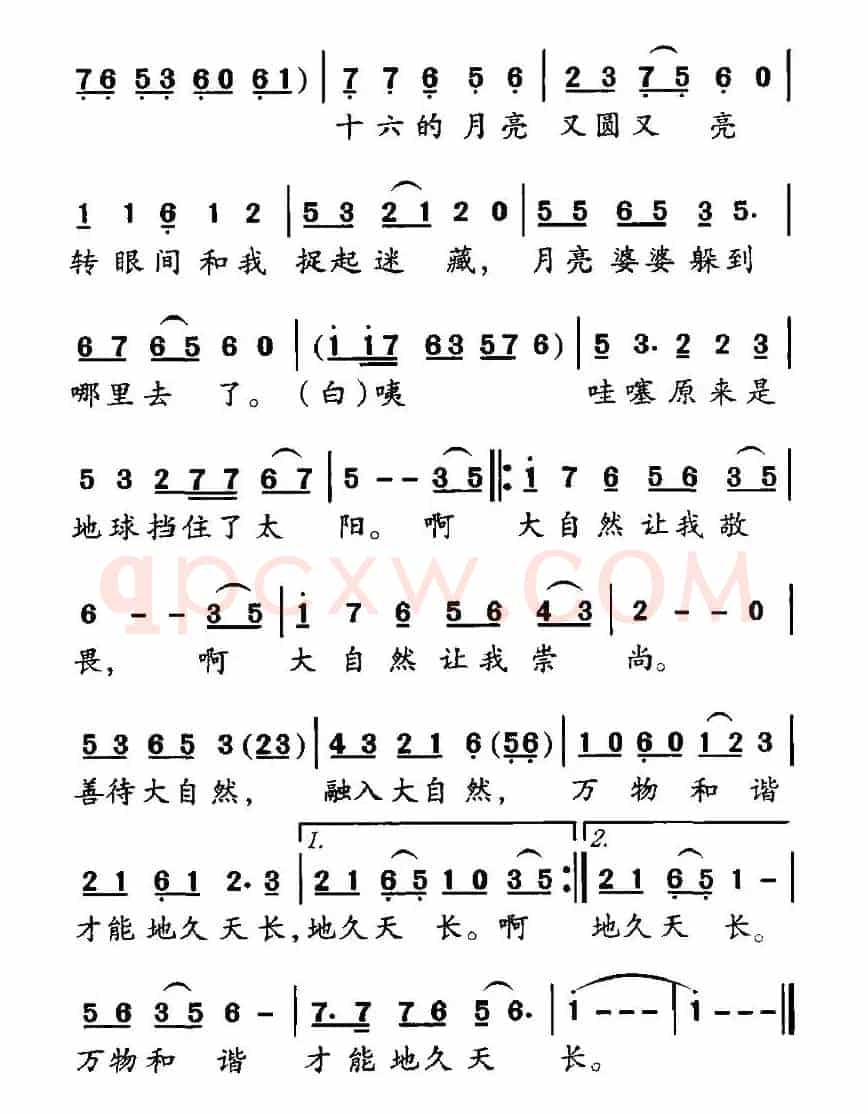 76 53 60 61) | 7 7 6 5 6 | 2 3 7 5 6 0 |
十六的月亮 又圆又 亮
1 1 6 1 2 | 53 21 2 0 | 55 65 3 5. |
转眼间和我 捉起迷 藏, 月亮婆婆躲到
67 65 6 0 | (i i7 63 57 6) | 5 3. 2 2 3 |
哪里去 了。(白)咦 哇噻原来是
5 3 2 77 67 | 5 - - 35 ‖: i 7 6 56 35 |
地球挡住了太 阳。啊 大自然让我敬
qpcxw.COM
6 - - 35 | i 7 6 56 43 | 2 - - 0
畏, 啊 大自然让我崇 尚。
53 65 3(23) | 43 21 6(56) | 10 60 12 3 |
善待大自然, 融入大自然, 万 物 和 谐
1. 2.
21 61 2. 3 | 21 65 10 35 :‖ 21 65 1 - |
才能地久天长,地久天 长。啊 地久天 长。
56 35 6 - | 7. 7 76 5 6. | i - - - | i - - - ‖
万物和 谐 才能地久天 长。